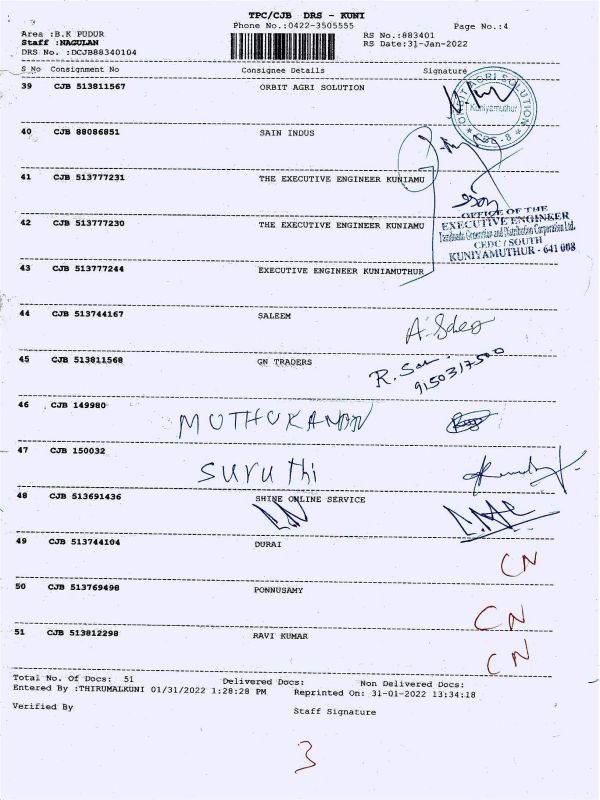 TPC/CJB DRS - KUNI
Phone No.:0422-3505555 Page No.:4
Area :B.K PUDUR RS No.:883401
Staff :NAGULAN RS Date:31-Jan-2022
DRS No. :DCJB88340104
S No Consignment No Consignee Details Signature
39 CJB 513811567 ORBIT AGRI SOLUTION
ORBIT AGRI SOLUTION
Kuniyamuthur
CBE - 8
40 CJB 88086851 SAIN INDUS
41 CJB 513777231 THE EXECUTIVE ENGINEER KUNIAMU
42 CJB 513777230 THE EXECUTIVE ENGINEER KUNIAMU
OFFICE OF THE
EXECUTIVE ENGINEER
Tamilnadu Generation and Distribution Corporation Ltd.
CEDC / SOUTH
KUNIYAMUTHUR - 641 008
43 CJB 513777244 EXECUTIVE ENGINEER KUNIAMUTHUR
44 CJB 513744167 SALEEM
45 CJB 513811568 GN TRADERS
9150317500
46 CJB 149980
47 CJB 150032
Suruthi
48 CJB 513691436 SHINE ONLINE SERVICE
49 CJB 513744104 DURAI
CN
50 CJB 513769498 PONNUSAMY
CN
51 CJB 513812298 RAVI KUMAR
CN
Total No. Of Docs: 51 Delivered Docs: Non Delivered Docs:
Entered By :THIRUMALKUNI 01/31/2022 1:28:28 PM Reprinted On: 31-01-2022 13:34:18
Verified By Staff Signature
3